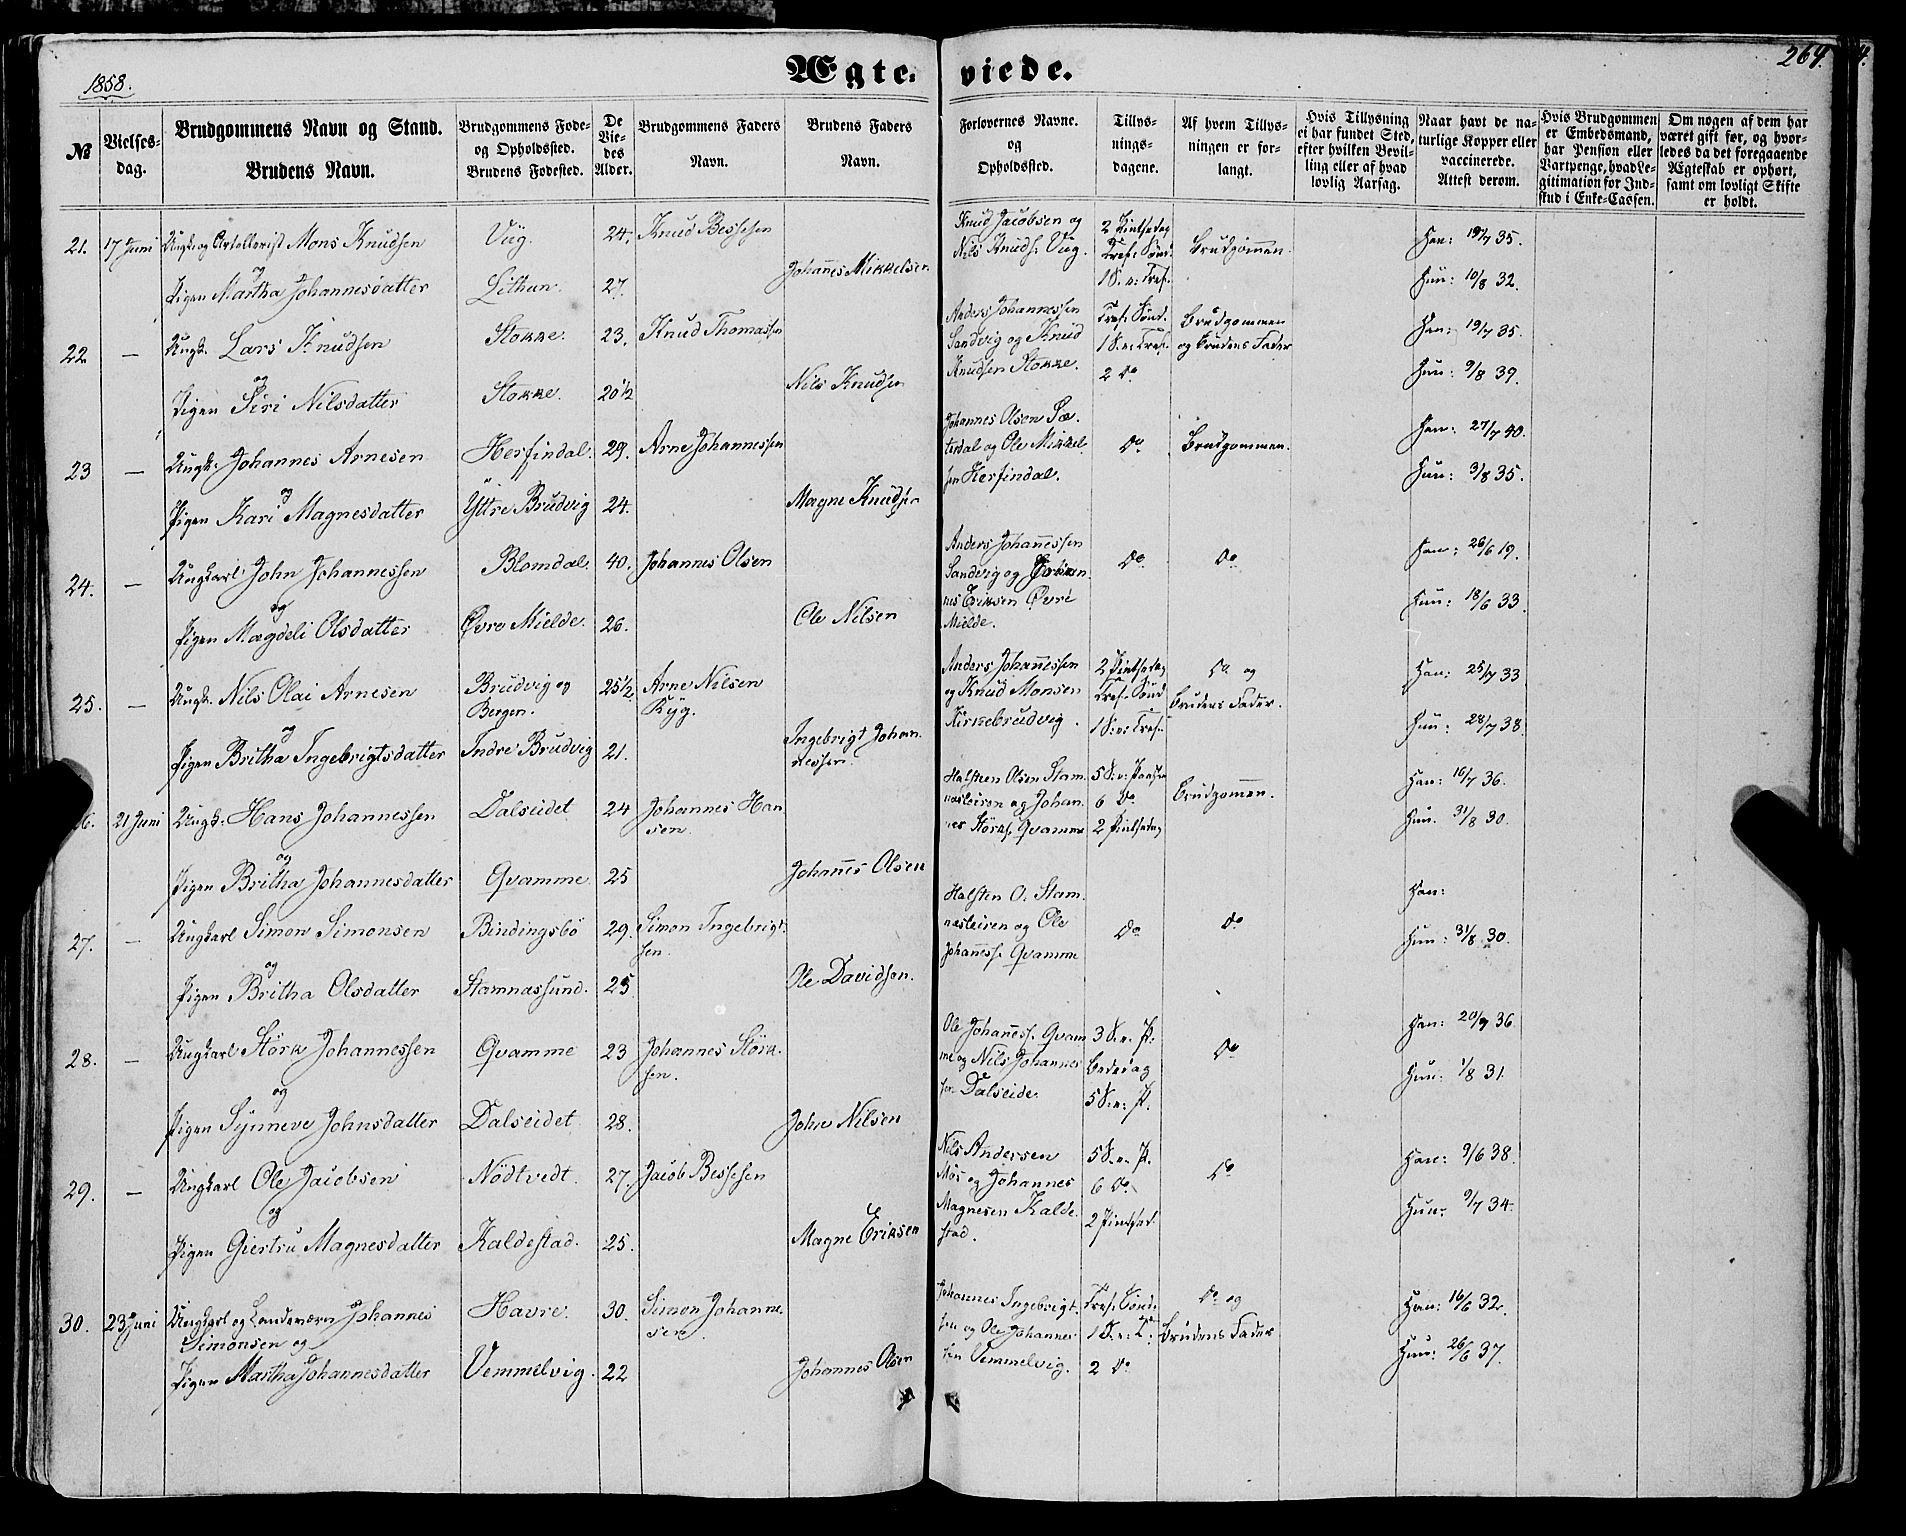 1858.
Ægteviede.
264.
№
Vielses-
dag.
Brudgommens Navn og Stand.
Brudens Navn.
Brudgommens Føde-
og Opholdssted.
Brudens Fødested.
De
Vie-
des
Alder.
Brudgommens Faders
Navn.
Brudens Faders
Navn.
Forlovernes Navne.
og
Opholdssted.
Tillys-
nings-
dagene.
Af hvem Tillys-
ningen er for-
langt.
Hvis Tillysning
ei har fundet Sted,
efter hvilken Bevil-
ling eller af hvad
lovlig Aarsag.
Naar havt de na-
turlige Kopper eller
vaccinerede.
Attest derom.
Hvis Brudgommen
er Embedsmand,
har Pension eller
Vartpenge, hvad Le-
gitimation for Ind-
skud i Enke-Cassen.
Om nogen af dem har
været gift før, og hvor-
ledes da det foregaaende
Ægteskab er ophørt,
samt om lovligt Skifte
er holdt.
21. 17 Juni Ungk. og Artellerist Mons Knudsen Vüg. 24. Knud Bessesen
og
Pigen Martha Johannesdatter Lithun. 27. Johanes Mikkelsen
Knud Jacobsen og
Nils Knuds. Vüg.
2 Pintsedag
Tref: Sönd:
1 S. e: Tref.
Brudgomen.
Han: 19/7 35.
Hun: 10/8 32.
22 — Ungk. Lars Knudsen Stokke. 23. Knud Thomassen
og
Pigen Siri Nilsdatter Stokke. 20½ Nils Knudsen
Anders Johannessen
Sandvig og Knud
Knudsen Stokke.
Tref: Sönd.
1 S. e: Tref.
2 Do
Brudgommen
og Brudens Fader
Han: 19/7 35.
Hun: 9/8 39.
23 — Ungk. Johannes Arnesen Herfindal. 29. Arne Johannessen
og
Pigen Kari Magnesdatter Yttre Brudvig 24. Magne Knudsen
Johannes Olsen Sæ-
terdal og Ole Mikkel-
sen Herfindal.
Do
Brudgommen.
Han: 27/7 40.
Hun: 3/8 35.
24. — Ungkarl John Johannessen Blomdal. 40. Johannes Olsen
og
Pigen Magdeli Olsdatter Øvre Mielde. 26. Ole Nilsen
Anders Johanessen
Sandvig og Johan-
nes Eriksen Øvre
Mielde.
Do
Do
Han: 26/6 19.
Hun: 18/6 33.
25. — Ungk. Nils Olai Arnesen Brudvig og 25½ Arne Nilsen
Bergen. Ryg.
og
Pigen Britha Ingebrigtsdatter Indre Brudvig 21. Ingebrigt Johan-
nessen.
Anders Johanessen
og Knud Monsen
Kirkebrudvig.
2 Pintsedag
Tref: Sönd
1 S. e: Tref.
Do og
Brudens Fader.
Han: 25/7 33
Hun: 28/7 38.
6. 21 Juni Ungk: Hans Johannessen Dalseidet 24 Johannes Han-
sen.
og
Pigen Britha Johannesdatter Qvamme 25 Johanes Olsen
Halsten Olsen Stam-
næsleiren og Johan-
nes Störks. Qvamme
5 S. e: Paaske
6 Do
2 Pintsedag
Brudgomen.
Han: 16/7 36.
Hun. 31/8 30.
27. — Ungkarl Simon Simonsen Bindingsbö 29. Simon Ingebrigt-
sen.
og
Pigen Britha Olsdatter Stamnæssund. 25 Ole Davidsen.
Halsten O. Stam-
næsleiren og Ole
Johaness. Qvamme
Do
Do
Han:
Hun: 31/8 30.
28. — Ungkarl Störk Johannessen Qvamme 23 Johannes Störk-
sen.
og
Pigen Synneve Johnsdatter Dalseidet 28. John Nilsen
Ole Johaness. Qvam-
me og Nils Johannes-
sen Dalseide.
3 S. e. P.
Bededag
5 S. e: P.
Do
Han: 20/7 36
Hun: 1/8 31.
29. — Ungkarl Ole Jacobsen Nödtvedt. 27. Jacob Bessesen
og
Pigen Giertru Magnesdatter Kaldestad. 25. Magne Eriksen
Nils Andersen
Mos og Johannes
Magnesen Kalde-
stad.
5 S. e. P.
6 Do
2 Pintsed.
Do
Han: 9/6 38.
Hun: 9/7 34.
30. 23 Juni Ungkarl og Landeværn Johannes Havre. 30. Simon Johanne-
Simonsen og sen.
Pigen Martha Johannesdatter Vemmelvig. 22 Johannes Olsen
Johannes Ingebrigt-
sen og Ole Johannes-
sen Vemmelvig.
Tref: Sönd:
1 S. e: T:
2 Do
Do og
Brudens Fader
Han: 16/6 32.
Hun: 26/6 37.